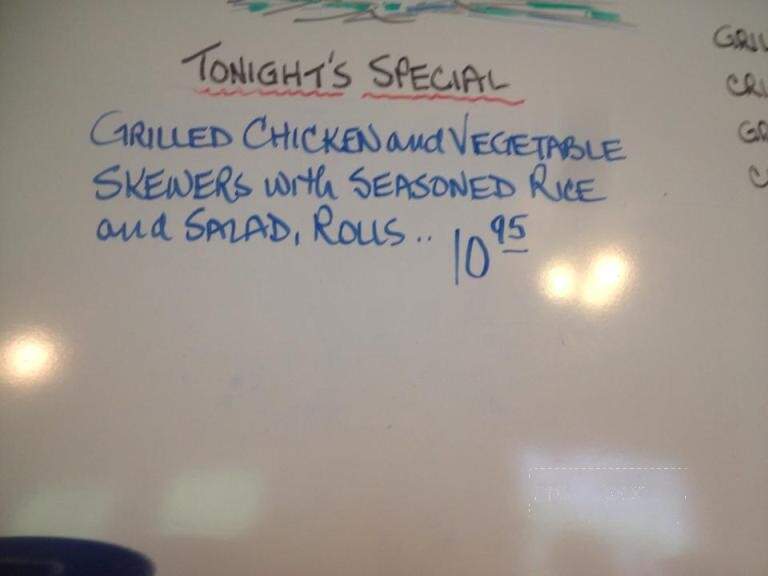 TONIGHT'S SPECIAL
GRILLED CHICKEN and VEGETABLE
SKEWERS with SEASONED RICE
and SALAD, ROLLS.. 10 95